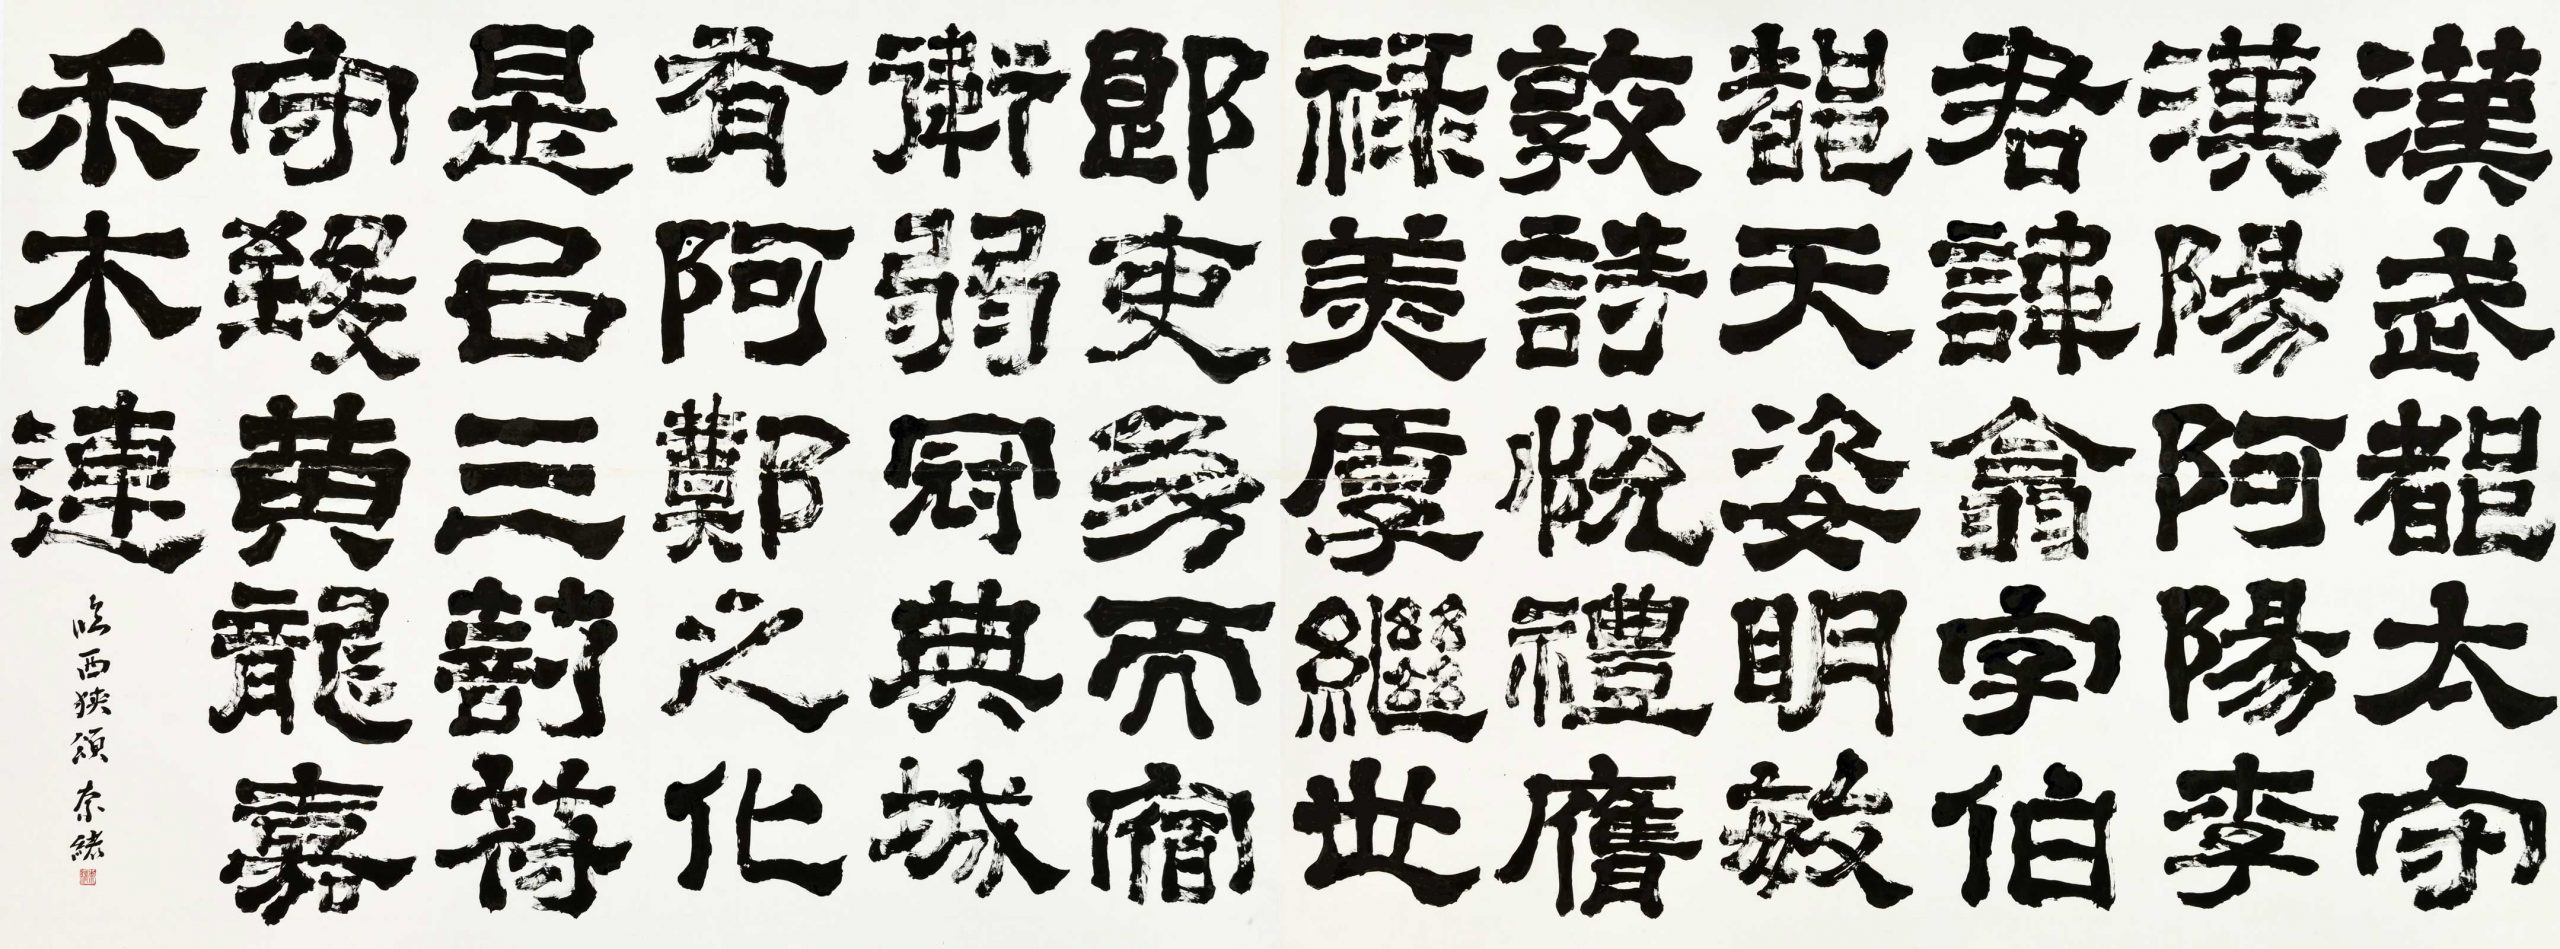 漢武都太守
漢陽阿陽李
君諱翕字伯
都天姿明敏
敦詩悅禮膺
祿美厚繼世
郎吏幼而宿
衛弱冠典城
有阿鄭之化
是㠯三剖符
守致黃龍嘉
禾木連
臨西狹頌 奈緒